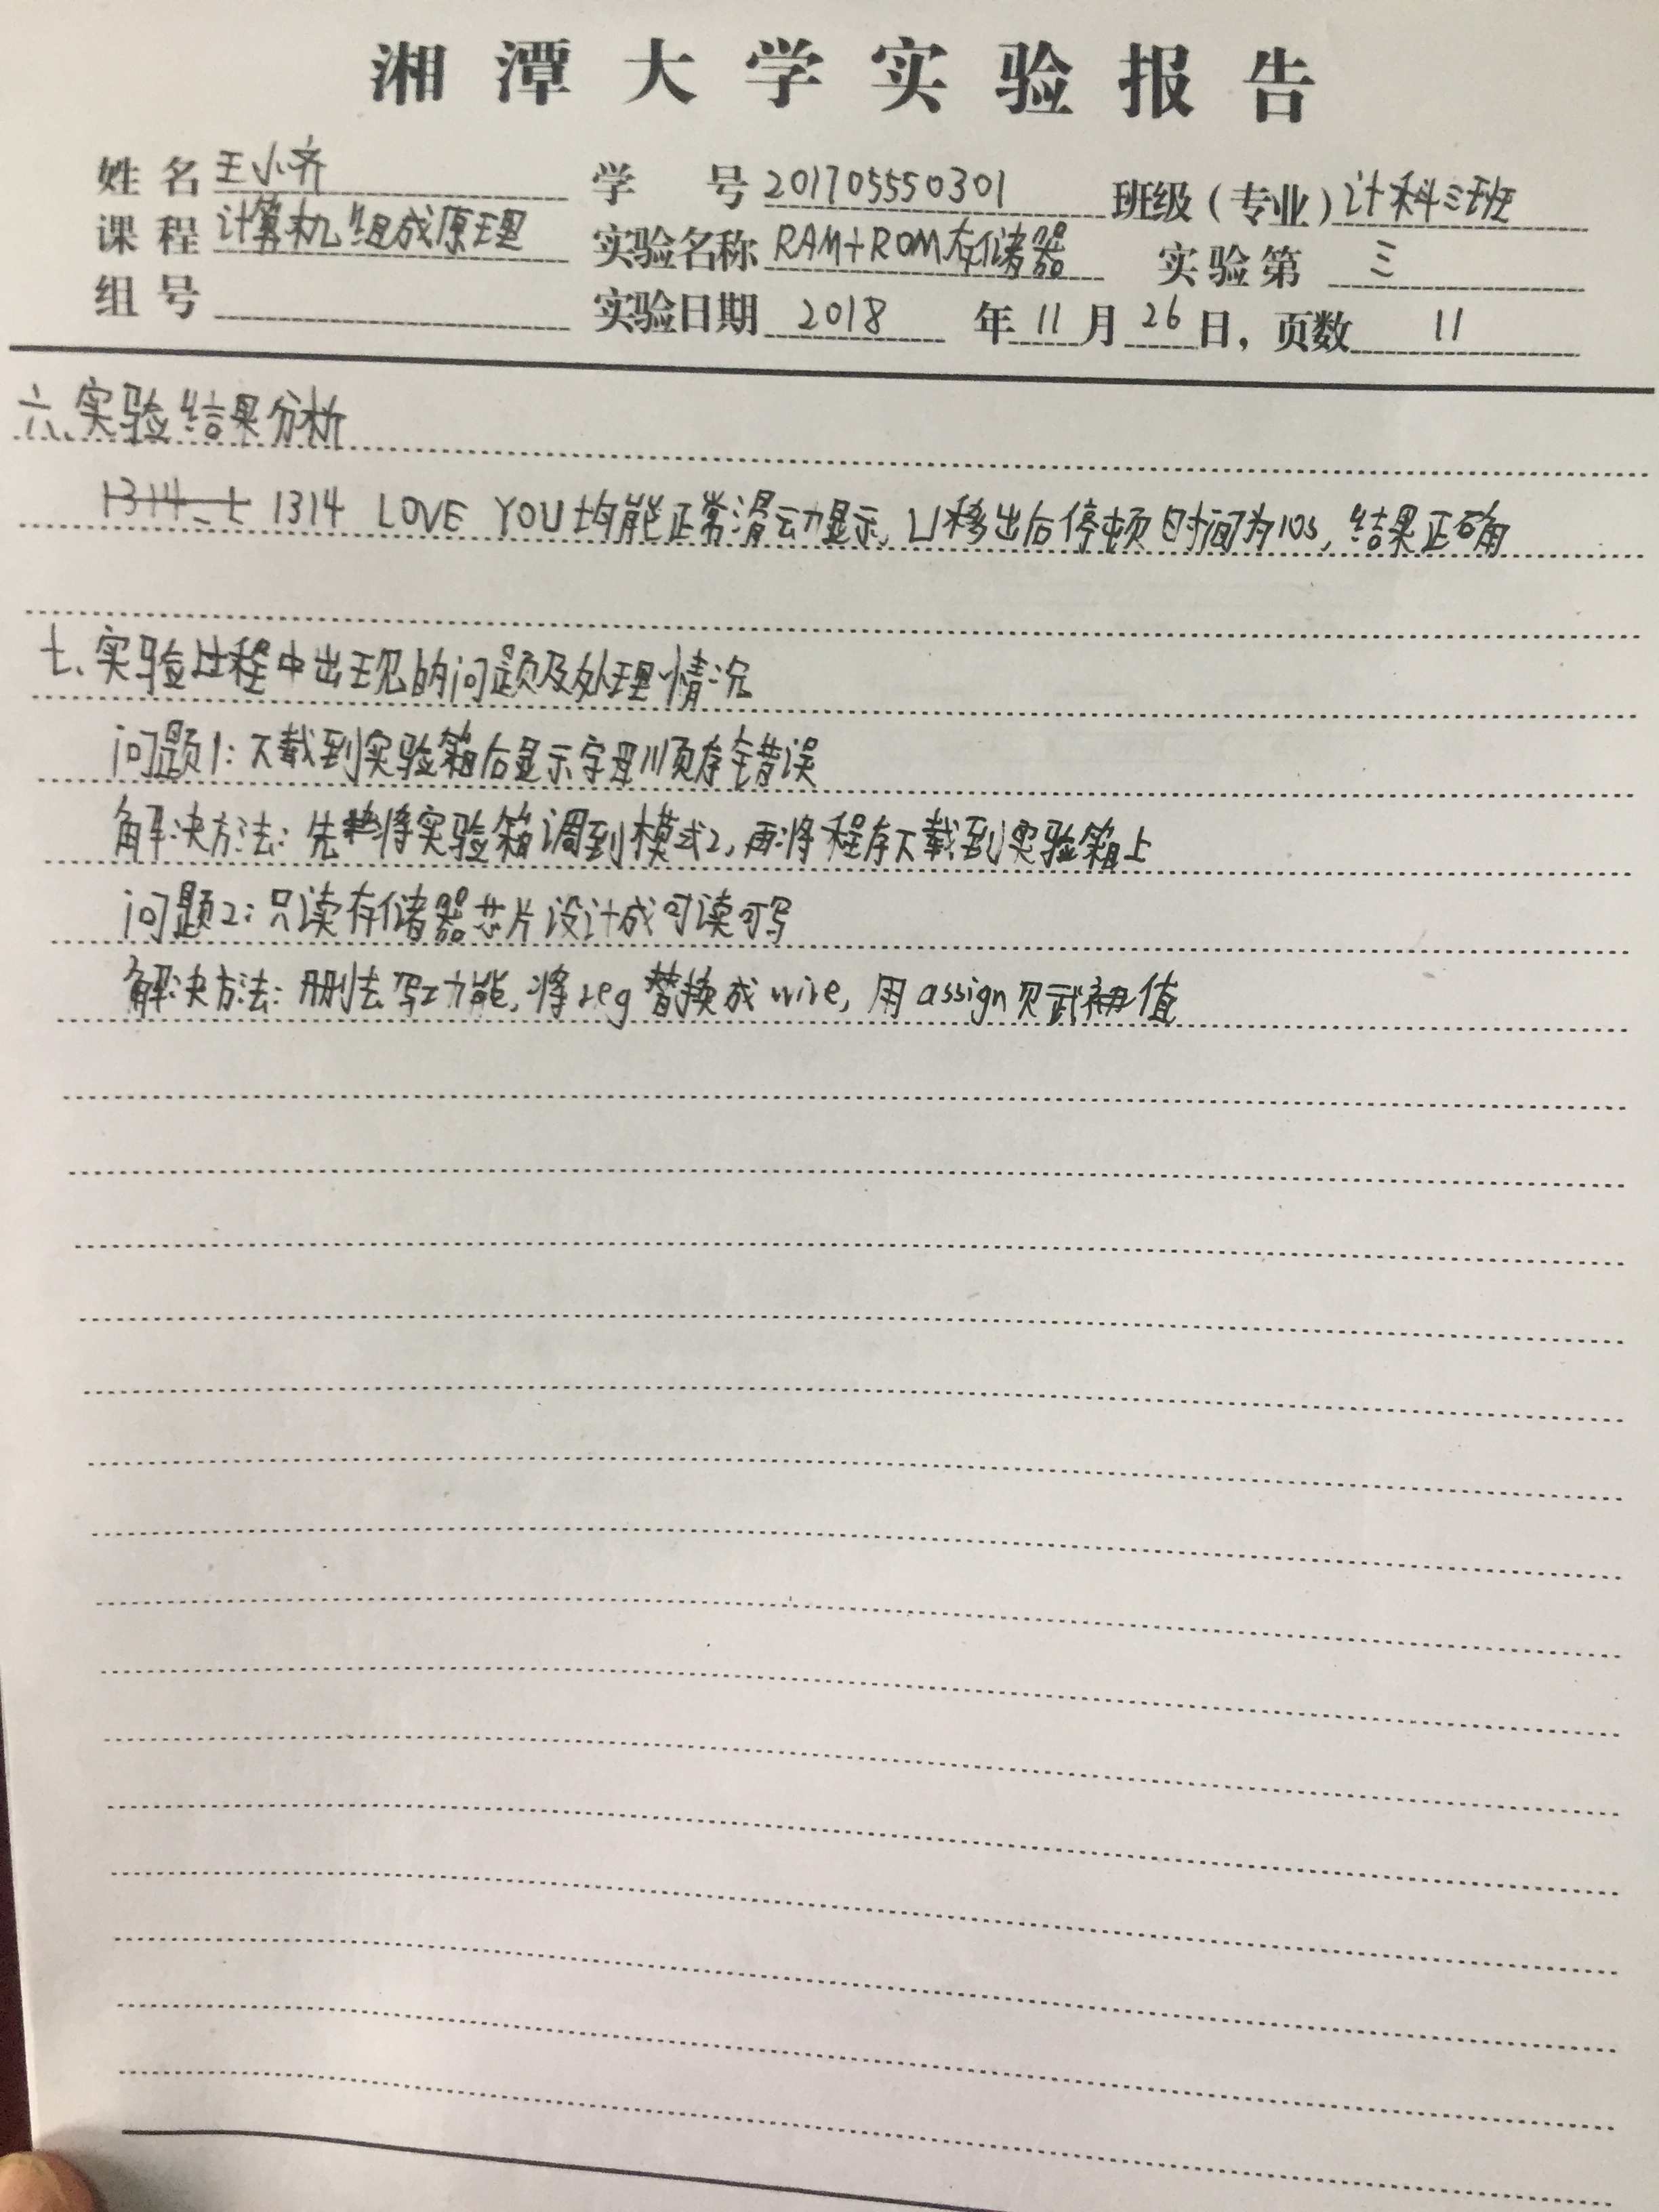 湘潭大学实验报告
姓名 王小齐 学号 201705550301 班级(专业) 计科三班
课程 计算机组成原理 实验名称 RAM+ROM存储器 实验第 三
组号 实验日期 2018 年 11 月 26 日, 页数 11
六、实验结果分析
1314 LOVE YOU 均能正常滑动显示, U移出后停顿时间为10s, 结果正确
七、实验过程中出现的问题及处理情况
问题1: 下载到实验箱后显示字母顺序错误
解决方法: 先将实验箱调到模式2, 再将程序下载到实验箱上
问题2: 只读存储器芯片设计成可读可写
解决方法: 删去写功能, 将reg替换成wire, 用assign赋初值